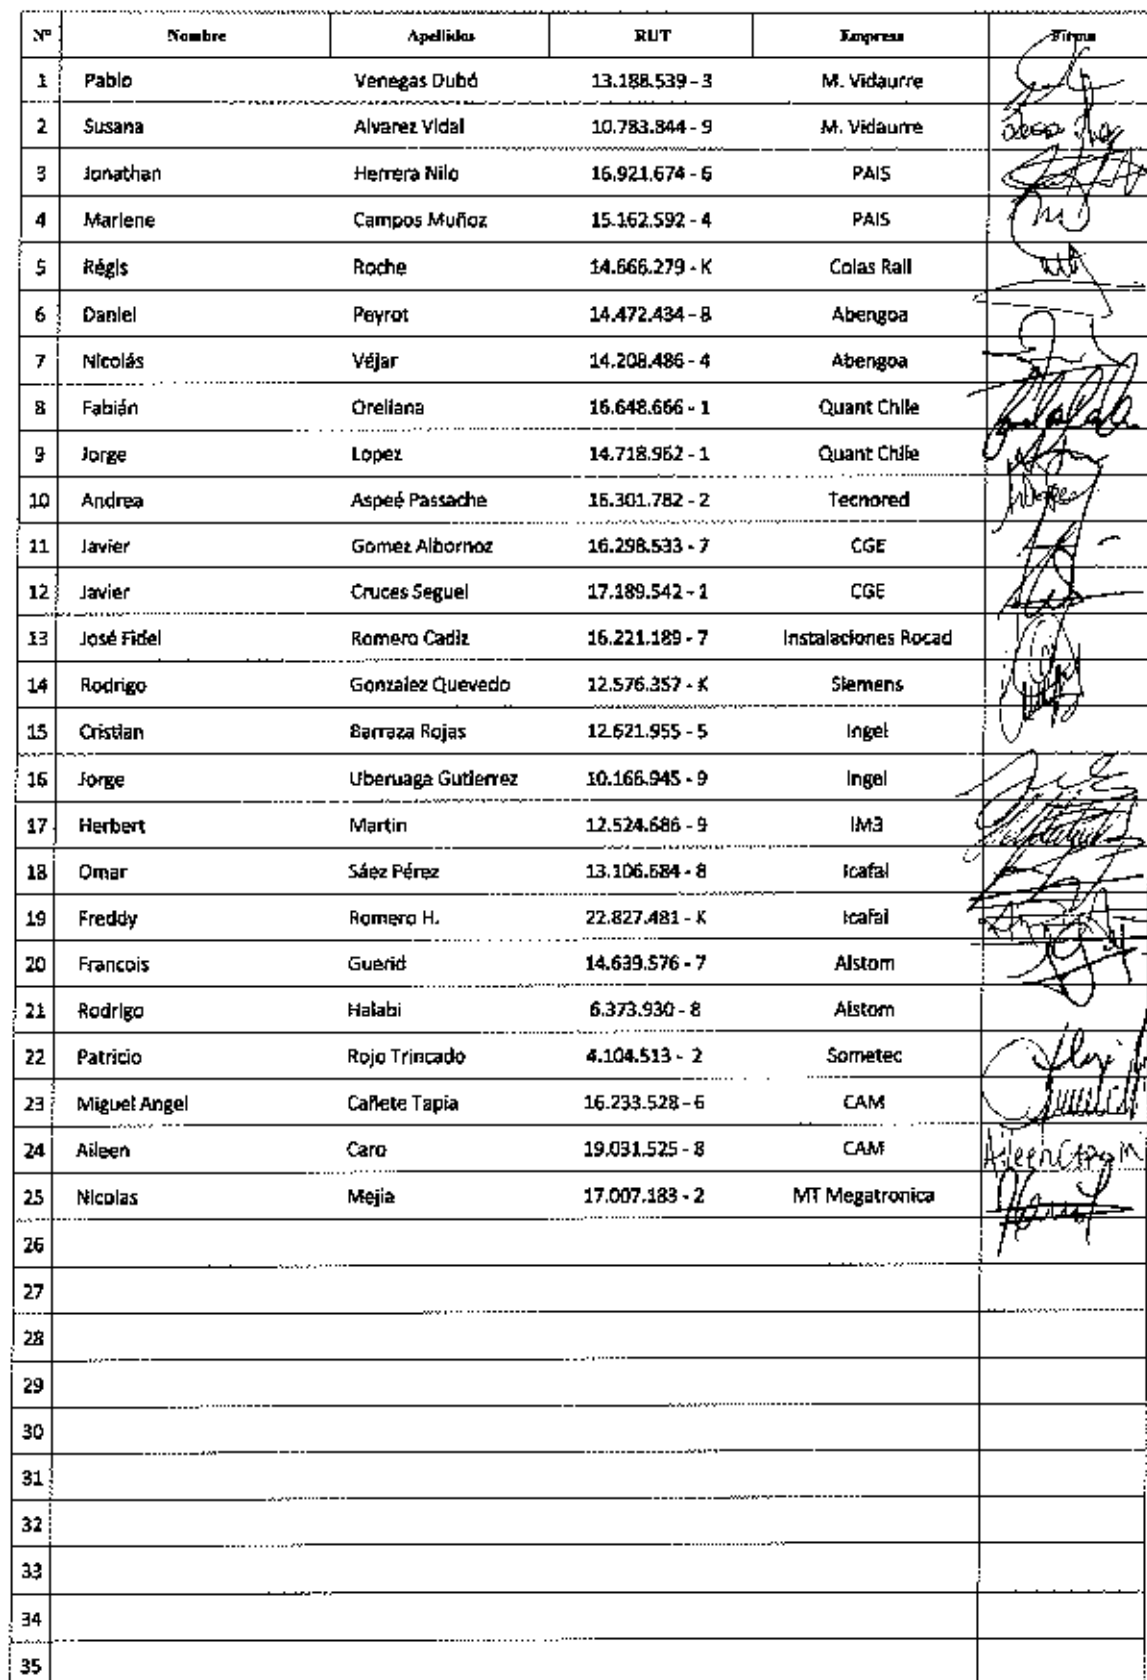 Nº Nombre Apellidos RUT Empresa Firma
1 Pablo Venegas Dubó 13.188.539 - 3 M. Vidaurre
2 Susana Alvarez Vidal 10.783.844 - 9 M. Vidaurre
3 Jonathan Herrera Nilo 16.921.674 - 6 PAIS
4 Marlene Campos Muñoz 15.162.592 - 4 PAIS
5 Régis Roche 14.666.279 - K Colas Rail
6 Daniel Peyrot 14.472.434 - 8 Abengoa
7 Nicolás Véjar 14.208.486 - 4 Abengoa
8 Fabián Orellana 16.648.666 - 1 Quant Chile
9 Jorge Lopez 14.718.962 - 1 Quant Chile
10 Andrea Aspeé Passache 16.301.782 - 2 Tecnored
11 Javier Gomez Albornoz 16.298.533 - 7 CGE
12 Javier Cruces Seguel 17.189.542 - 1 CGE
13 José Fidel Romero Cadiz 16.221.189 - 7 Instalaciones Rocad
14 Rodrigo Gonzalez Quevedo 12.576.357 - K Siemens
15 Cristian Barraza Rojas 12.621.955 - 5 Ingel
16 Jorge Uberuaga Gutierrez 10.166.945 - 9 Ingel
17 Herbert Martin 12.524.686 - 9 IM3
18 Omar Sáez Pérez 13.106.684 - 8 Icafal
19 Freddy Romero H. 22.827.481 - K Icafal
20 Francois Guerid 14.639.576 - 7 Alstom
21 Rodrigo Halabi 6.373.930 - 8 Alstom
22 Patricio Rojo Trincado 4.104.513 - 2 Sometec
23 Miguel Angel Cañete Tapia 16.233.528 - 6 CAM
24 Aileen Caro 19.031.525 - 8 CAM Aileen Caro M
25 Nicolas Mejia 17.007.183 - 2 MT Megatronica
26
27
28
29
30
31
32
33
34
35